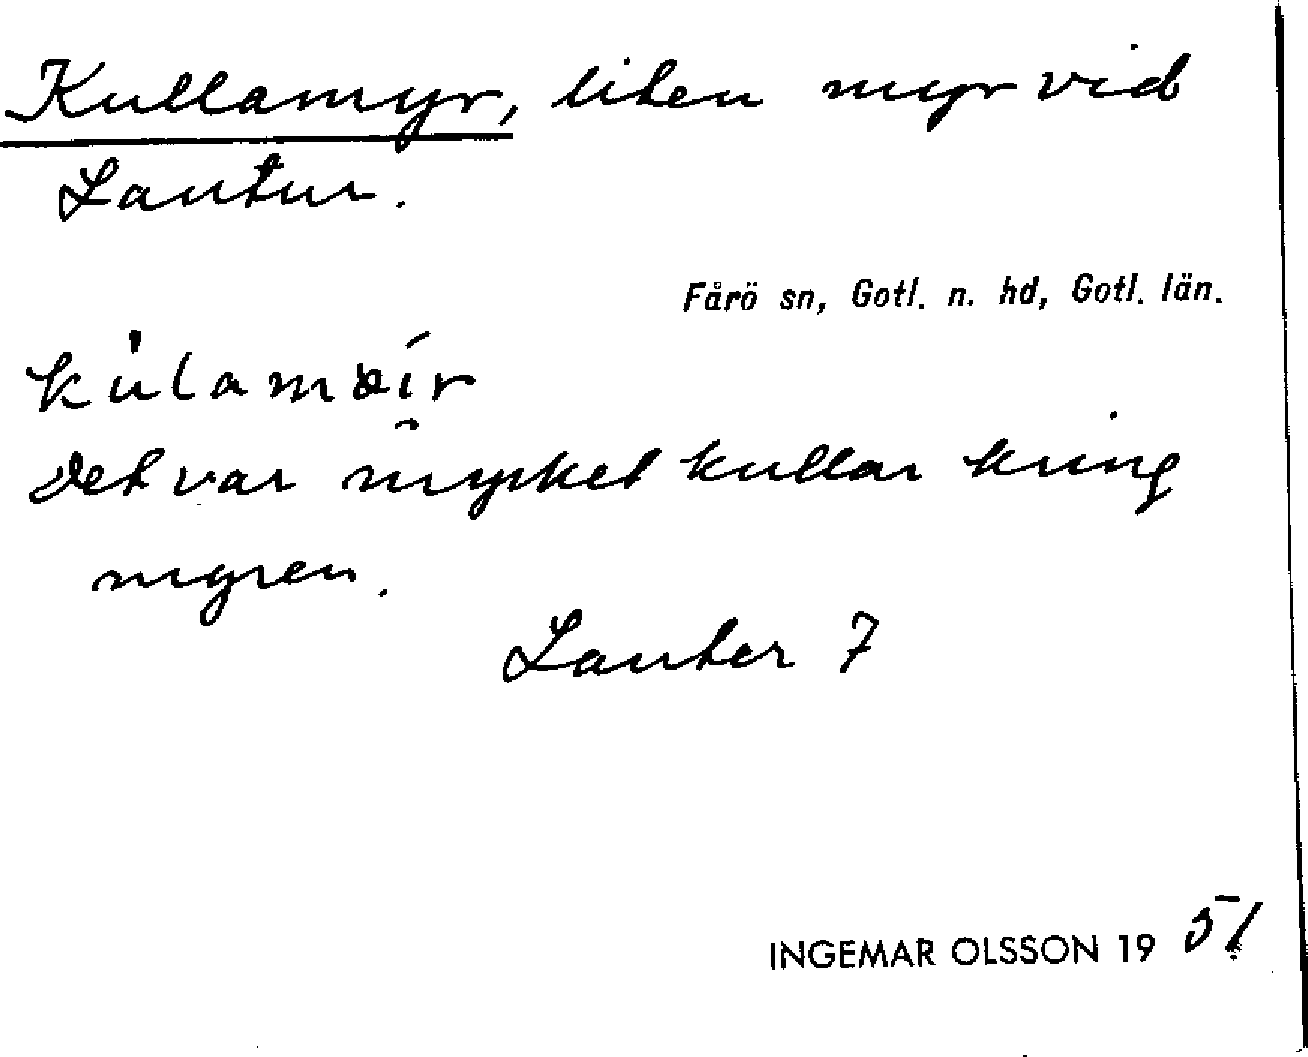 Kullamyr, liten myr vid
Lautur.
Fårö sn, Gotl. n. hd, Gotl. län.
Det var mycket kullar kring
myren.
Lauter 7
INGEMAR OLSSON 19 51